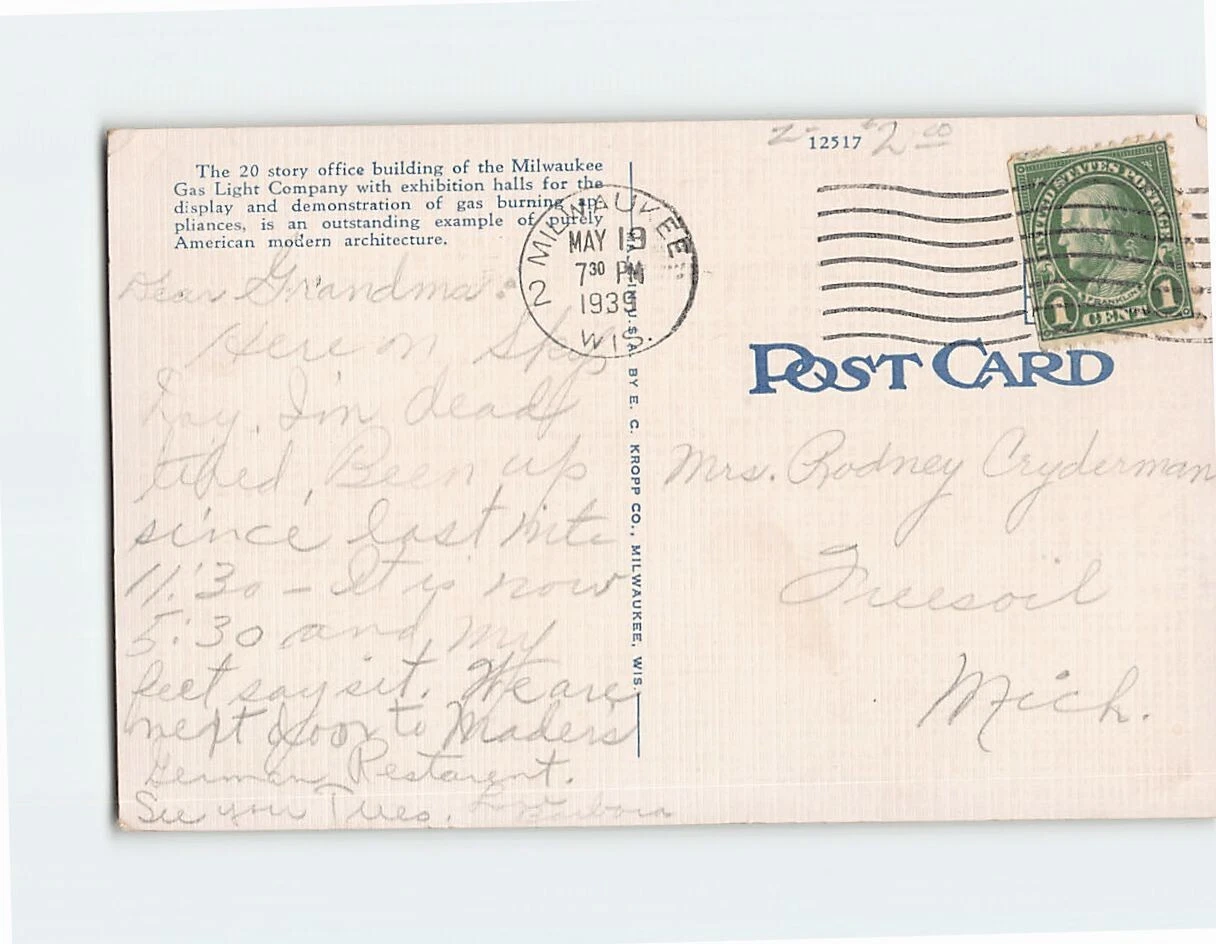 2- 12517 $2.00
The 20 story office building of the Milwaukee
Gas Light Company with exhibition halls for the
display and demonstration of gas burning ap-
pliances, is an outstanding example of purely
American modern architecture.
MILWAUKEE
MAY 19
7 30 PM
1939
WIS.
2
UNITED STATES POSTAGE
FRANKLIN
1 CENT 1
POST CARD
MADE IN U.S.A. BY E. C. KROPP CO., MILWAUKEE, WIS.
Dear Grandma:
Here on
Day. I'm dead
tired, Been up
since last nite
11:30 - It is now
5:30 and my
feet say sit. We are
next door to Mader's
German Restarent.
See you Tues. Love
Barbora
Mrs. Rodney Cryderman
Freesoil
Mich.